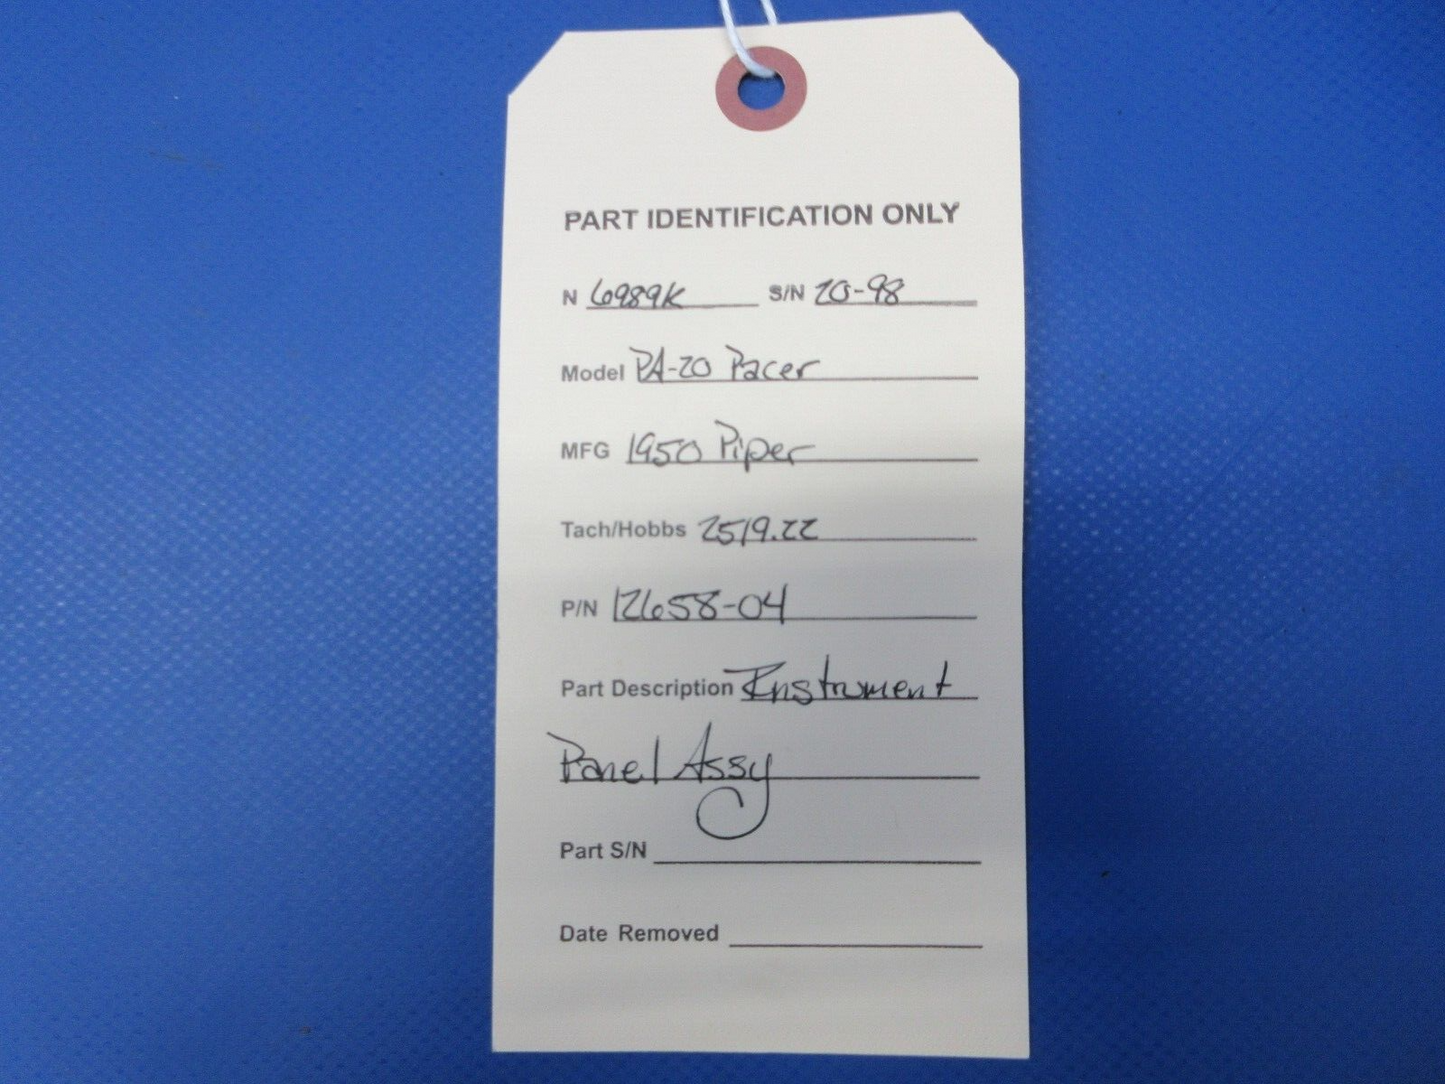 PART IDENTIFICATION ONLY
N 6989K S/N 20-98
Model PA-20 Pacer
MFG 1950 Piper
Tach/Hobbs 2519.22
P/N 12658-04
Part Description Instrument
Panel Assy
Part S/N
Date Removed